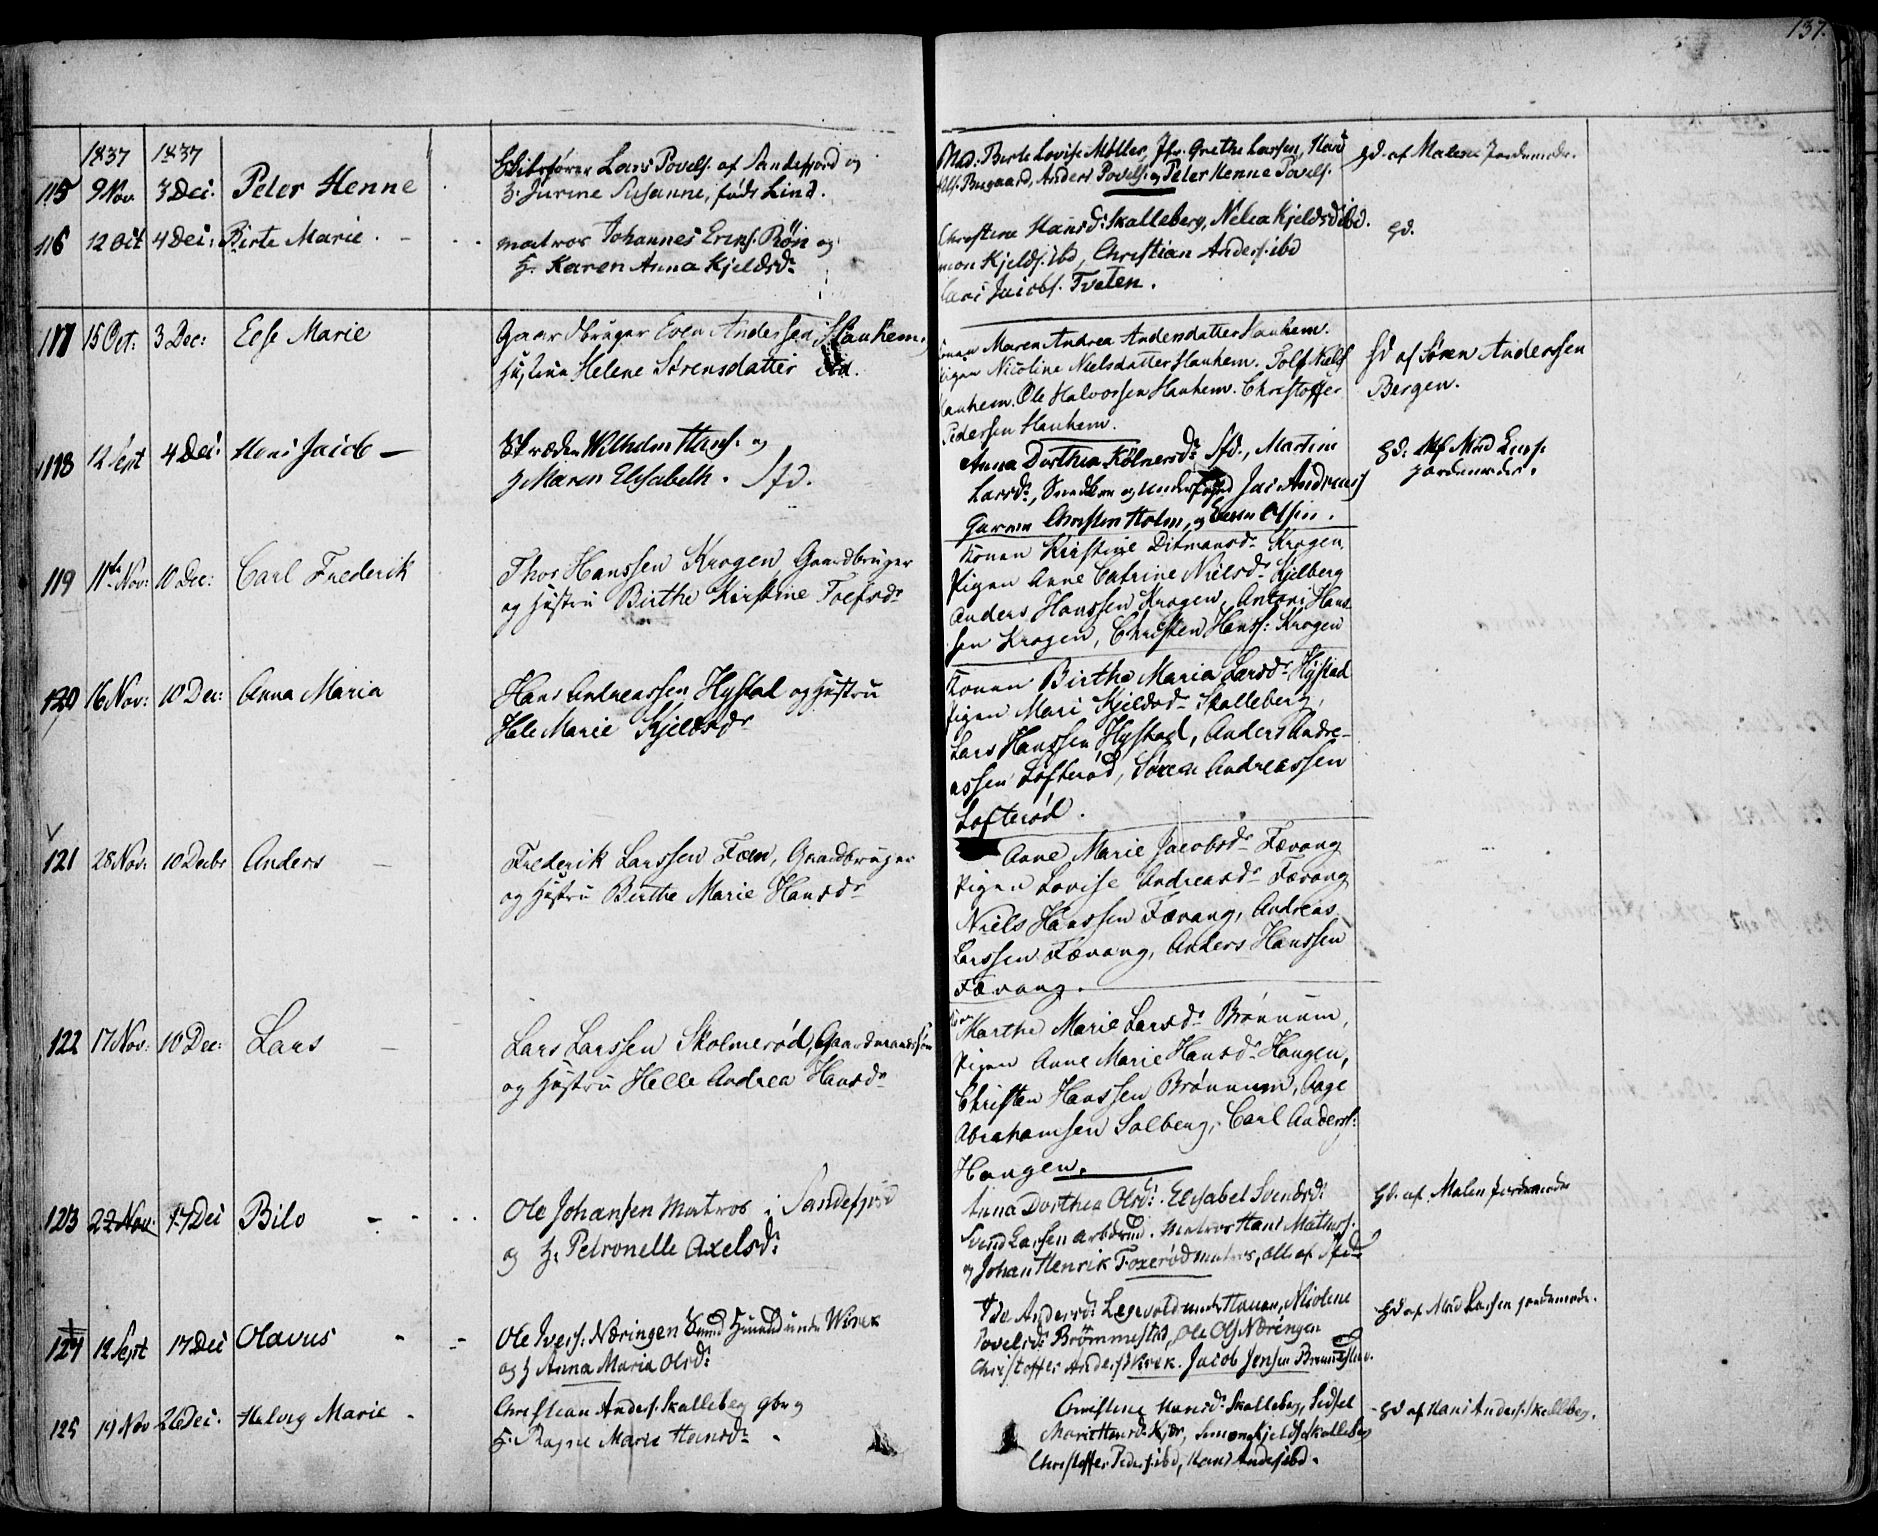 137.
1837 1837
115 9 Nov 3 Dec: Peter Henne
Skibsfører Lars Povels. af Sandefjord og
H: Jurine Susanne, født Lind.
Mad: Birte Lovise Møller, Jfr. Grethe Larsen, Hans
Bugaard, Anders Povels. og Peter Henne Povels.
gd. af Malene Jordemoder.
116 12 Oct 4 Dec: Birte Marie
matros Johannes Erins. Røn og
H. Karen Anna Kjeldsdr
Christine Hansdr Skalleberg, Nelea Kjeldsdr ibd.
Kjelds. ibd, Christian Anders. ibd
Jacobs. Tveten.
gd.
117 15 Oct: 3 Dec: Else Marie
Gaardbruger Even Andersen Hauhem
Hustru Helene Sørensdatter ibd.
Konen Maren Andrea Andersdatter Hauhem.
Pigen Nicoline Nielsdatter Hauhem. Tolf Niels
Hauhem. Ole Halvorsen Hauhem. Christoffer
Pedersen Hauhem.
Hd af Søren Andersen
Bergen.
118 12 Sept 4 Dec: Hans Jacob
Wilhelm Hans. og
H Maren Elisabeth. Sfd.
Anna Dorthea Kølnersdr Sfd., Martine
Larsdr, Snedker og Jac Andreas
Garver Christen Holm, og Olsen.
gd: Mad
Jordemoder.
119 11te Nov: 10 Dec: Carl Frederik
Thor Hanssen Krogen Gaardbruger
og Hustru Birthe Kirstine Tolfsdr
Konen Kirstine Ditmansdr Krogen,
Pigen Anne Catrine Nielsdr Kjelberg
Anders Hanssen Krogen, Anton Hans
sen Krogen, Christen Hanss: Krogen
120 16 Nov: 10 Dec: Anna Maria
Hans Andreassen Hystad og Hustru
Hele Marie Kjeldsdr
Konen Birthe Maria Larsdr Hystad
Pigen Mari Kjeldsdr Skalleberg,
Lars Hanssen Hystad, Anders Andre-
assen Lofterød, Søren Andreassen
Lofterød.
121 28 Nov: 10 Decbr Anders
Frederik Larssen Foen, Gaardbruger
og Hustru Birthe Marie Hansdr
Anne Marie Jacobsdr Fævang
Pigen Lovise Andreasdr Fævang
Niels Hanssen Fævang, Andreas
Larssen Fævang, Anders Hanssen
Fævang.
122 17 Nov: 10 Dec: Lars
Lars Larssen Skolmerød, Gaardmandssøn
og Hustru Helle Andrea Hansdr
Marthe Marie Larsdr Brønnum,
Pigen Anne Marie Hansdr Haugen,
Christen Hanssen Brønnum, Aage
Abrahamsen Solberg, Carl Anderss:
Haugen.
123 22 Nov: 17 Dec Bilo
Ole Johansen Matros i Sandefjord
og H: Petronelle Axelsdr
Anna Dorthea Olsdr. Elisabet Svendsdr
Svend Larsen arbdsmd. Matros Hans Mathiss.
og Johan Henrik Foxerød matros, alle af Sfd
Hd. af Malen Jordemoder
124 12 Sept 17 Dec Olavus
Ole Ivers: Næringen Huusmd under Wirek
og H Anna Maria Olsdr
Ide Andersdr Legevold under Hauan, Nicolene
Povelsdr Brømmestad, Ole Ols Næringen
Christoffer Anders Virek. Jacob Jensen
Hd af Mad Larsen jordemoder.
125 19 Nov 26 Dec. Helvig Marie
Christian Anders. Skalleberg gbr og
H: Ragne Marie Hansdr
Christine Hansdr Skalleberg, Sidsel
Marie Hansdr Kjær, Simon Kjelds Skalleberg
Christoffer Peders. ibd, Hans Anders ibd.
Hd af Hans Anders. Skalleberg.